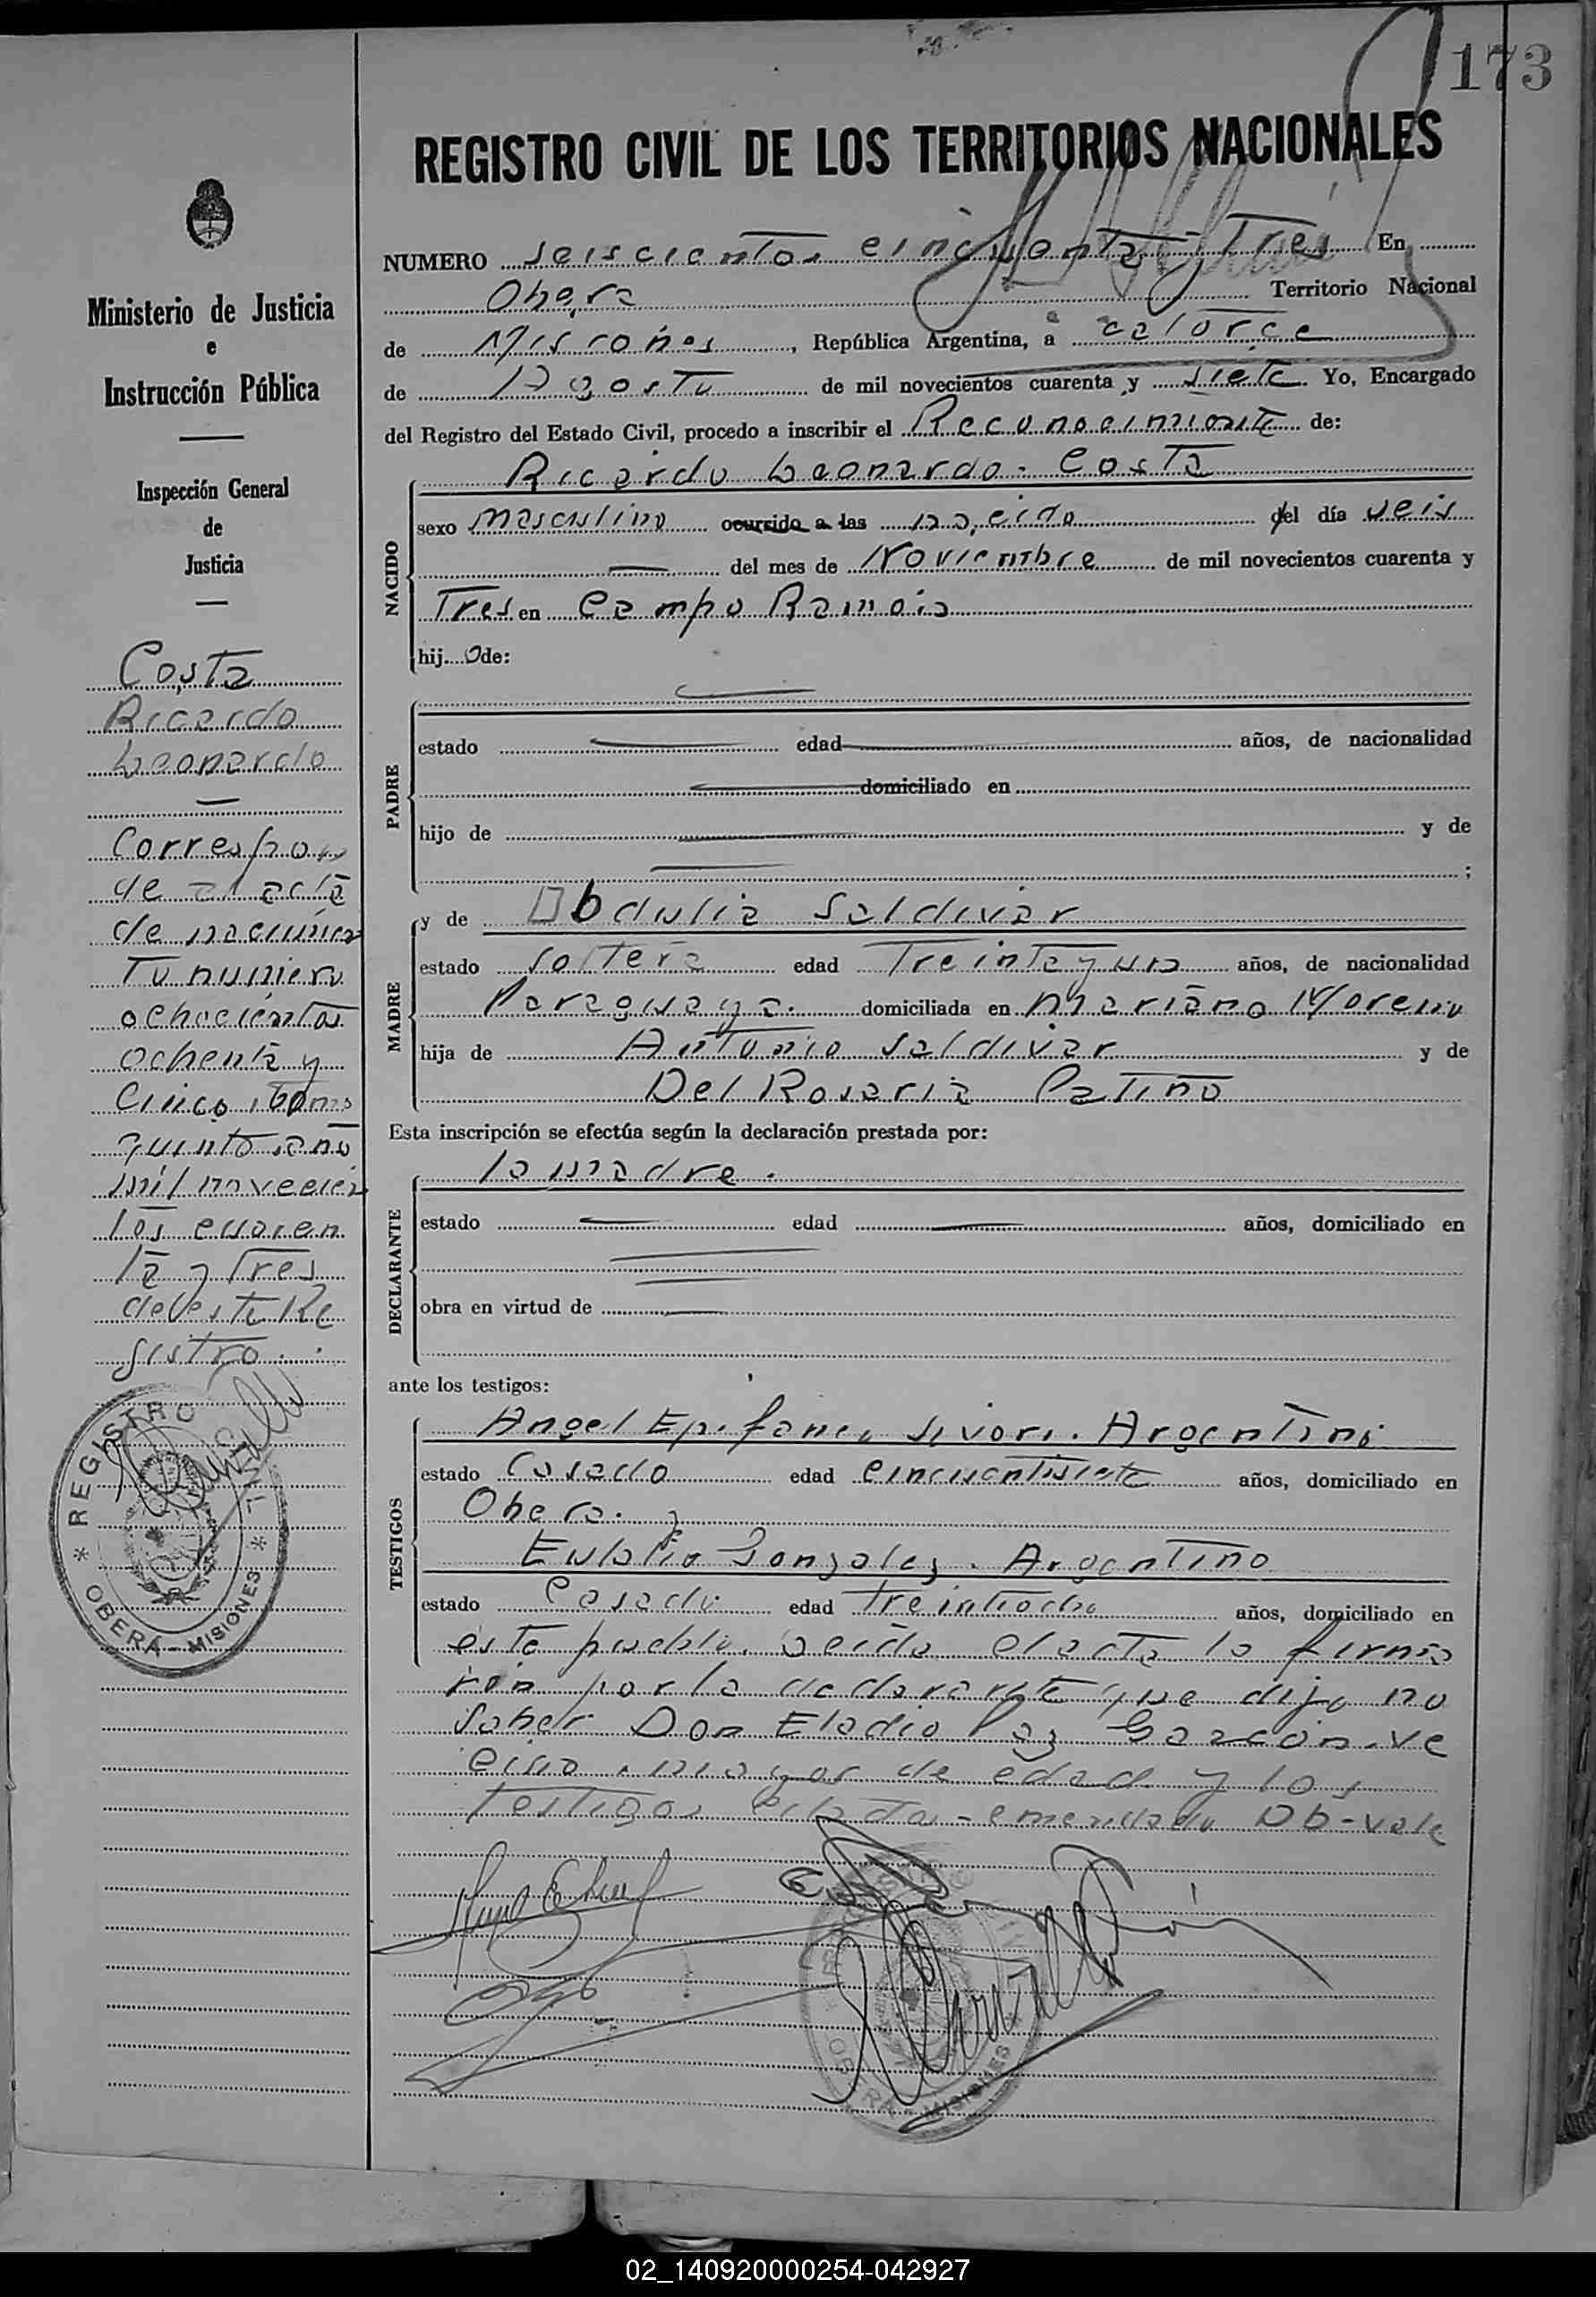 173
REGISTRO CIVIL DE LOS TERRITORIOS NACIONALES
Ministerio de Justicia
e
Instrucción Pública
Inspección General
de
Justicia
Costa
Ricardo
Leonardo
Correspon
de al acta
de nacimien
to numero
ochocientos
ochenta y
cinco, tomo
quinto, año
mil novecien
tos cuaren
ta y tres
de este Re
gistro.
REGISTRO CIVIL
* OBERA - MISIONES *
NUMERO seiscientos cincuenta y tres En
Obera Territorio Nacional
de Misiones, República Argentina, a catorce
de Agosto de mil novecientos cuarenta y siete. Yo, Encargado
del Registro del Estado Civil, procedo a inscribir el Reconocimiento de:
NACIDO
Ricardo Leonardo Costa
sexo masculino ocurrido a las nacido del día seis
del mes de Noviembre de mil novecientos cuarenta y
Tres en Campo Ramon
hij o de:
PADRE
estado edad años, de nacionalidad
domiciliado en
hijo de y de
;
MADRE
y de Obdulia Saldivar
estado soltera edad Treinta y un años, de nacionalidad
Paraguaya. domiciliada en Mariano Moreno
hija de Antonio Saldivar y de
Del Rosaria Patiño
Esta inscripción se efectúa según la declaración prestada por:
DECLARANTE
la madre.
estado edad años, domiciliado en
obra en virtud de
ante los testigos:
TESTIGOS
Angel Epifanio Sivori. Argentino
estado Casado edad cincuentisiete años, domiciliado en
Obera. y
Eulalio Gonzalez. Argentino
estado Casado edad treintiocho años, domiciliado en
este pueblo. Leída el acta la firma
ron por la declarante que dijo no
saber Don Eladio Paz Garzón, ve
cino, mayor de edad y los
testigos citados - emendado Ob - vale
OBERA - MISIONES
02_140920000254-042927